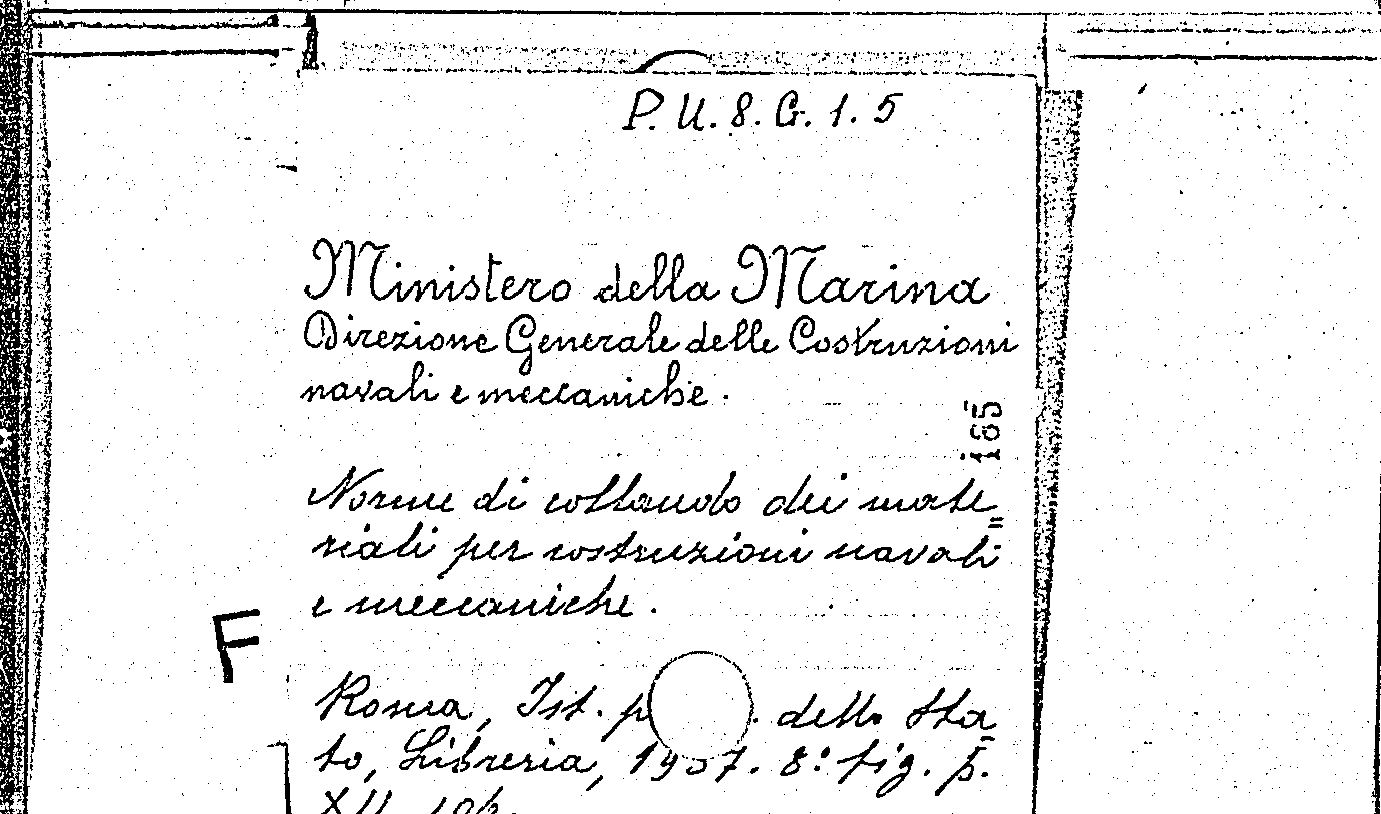 P. U. 8. G. 1. 5
Ministero della Marina
Direzione Generale delle Costruzioni
navali e meccaniche.
165
Norme di collaudo dei mate=
riali per costruzioni navali
e meccaniche.
F
Roma, Ist. p . dello Sta
to, Libreria, 1937. 8° fig. p.
XII, 106.